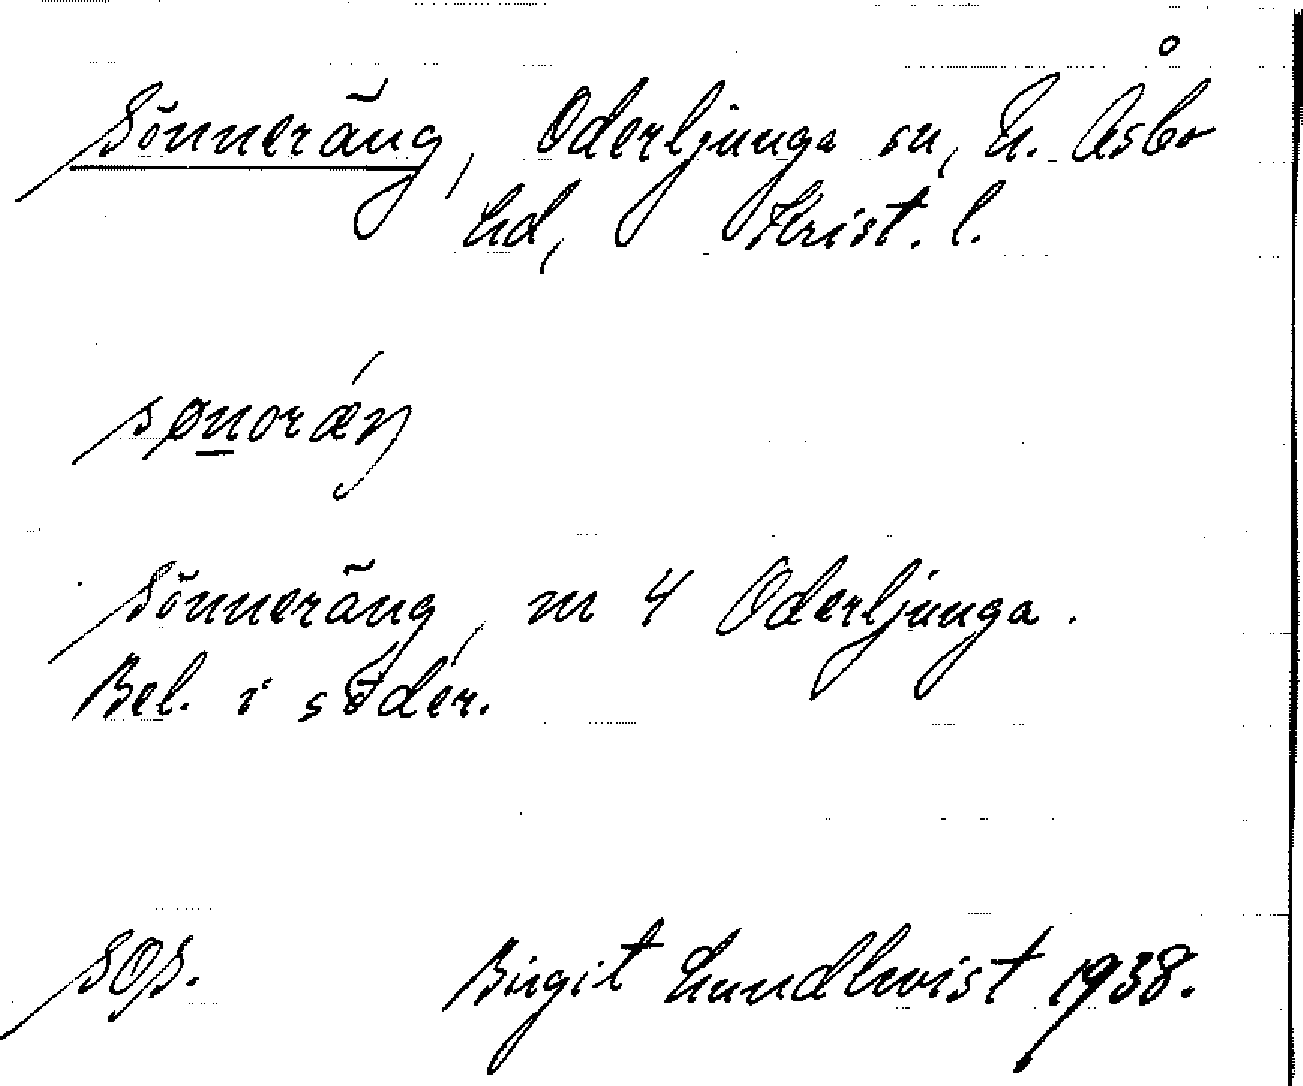 Sönneräng, Oderljunga sn, N. Åsbo
hd, Krist. l.
sønoræ´ŋ
Sönneräng, m 4 Oderljunga.
Bel. i söder.
SOS. Birgit Lundkvist 1938.